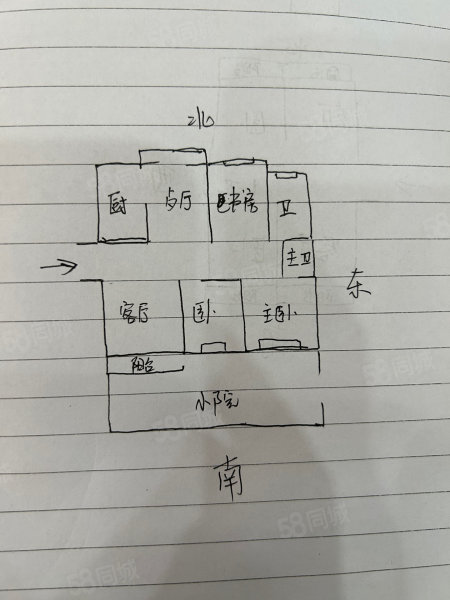 北
厨
餐厅
书房
卫
主卫
东
客厅
卧
主卧
阳台
小院
南
58同城
58同城
58同城
58同城